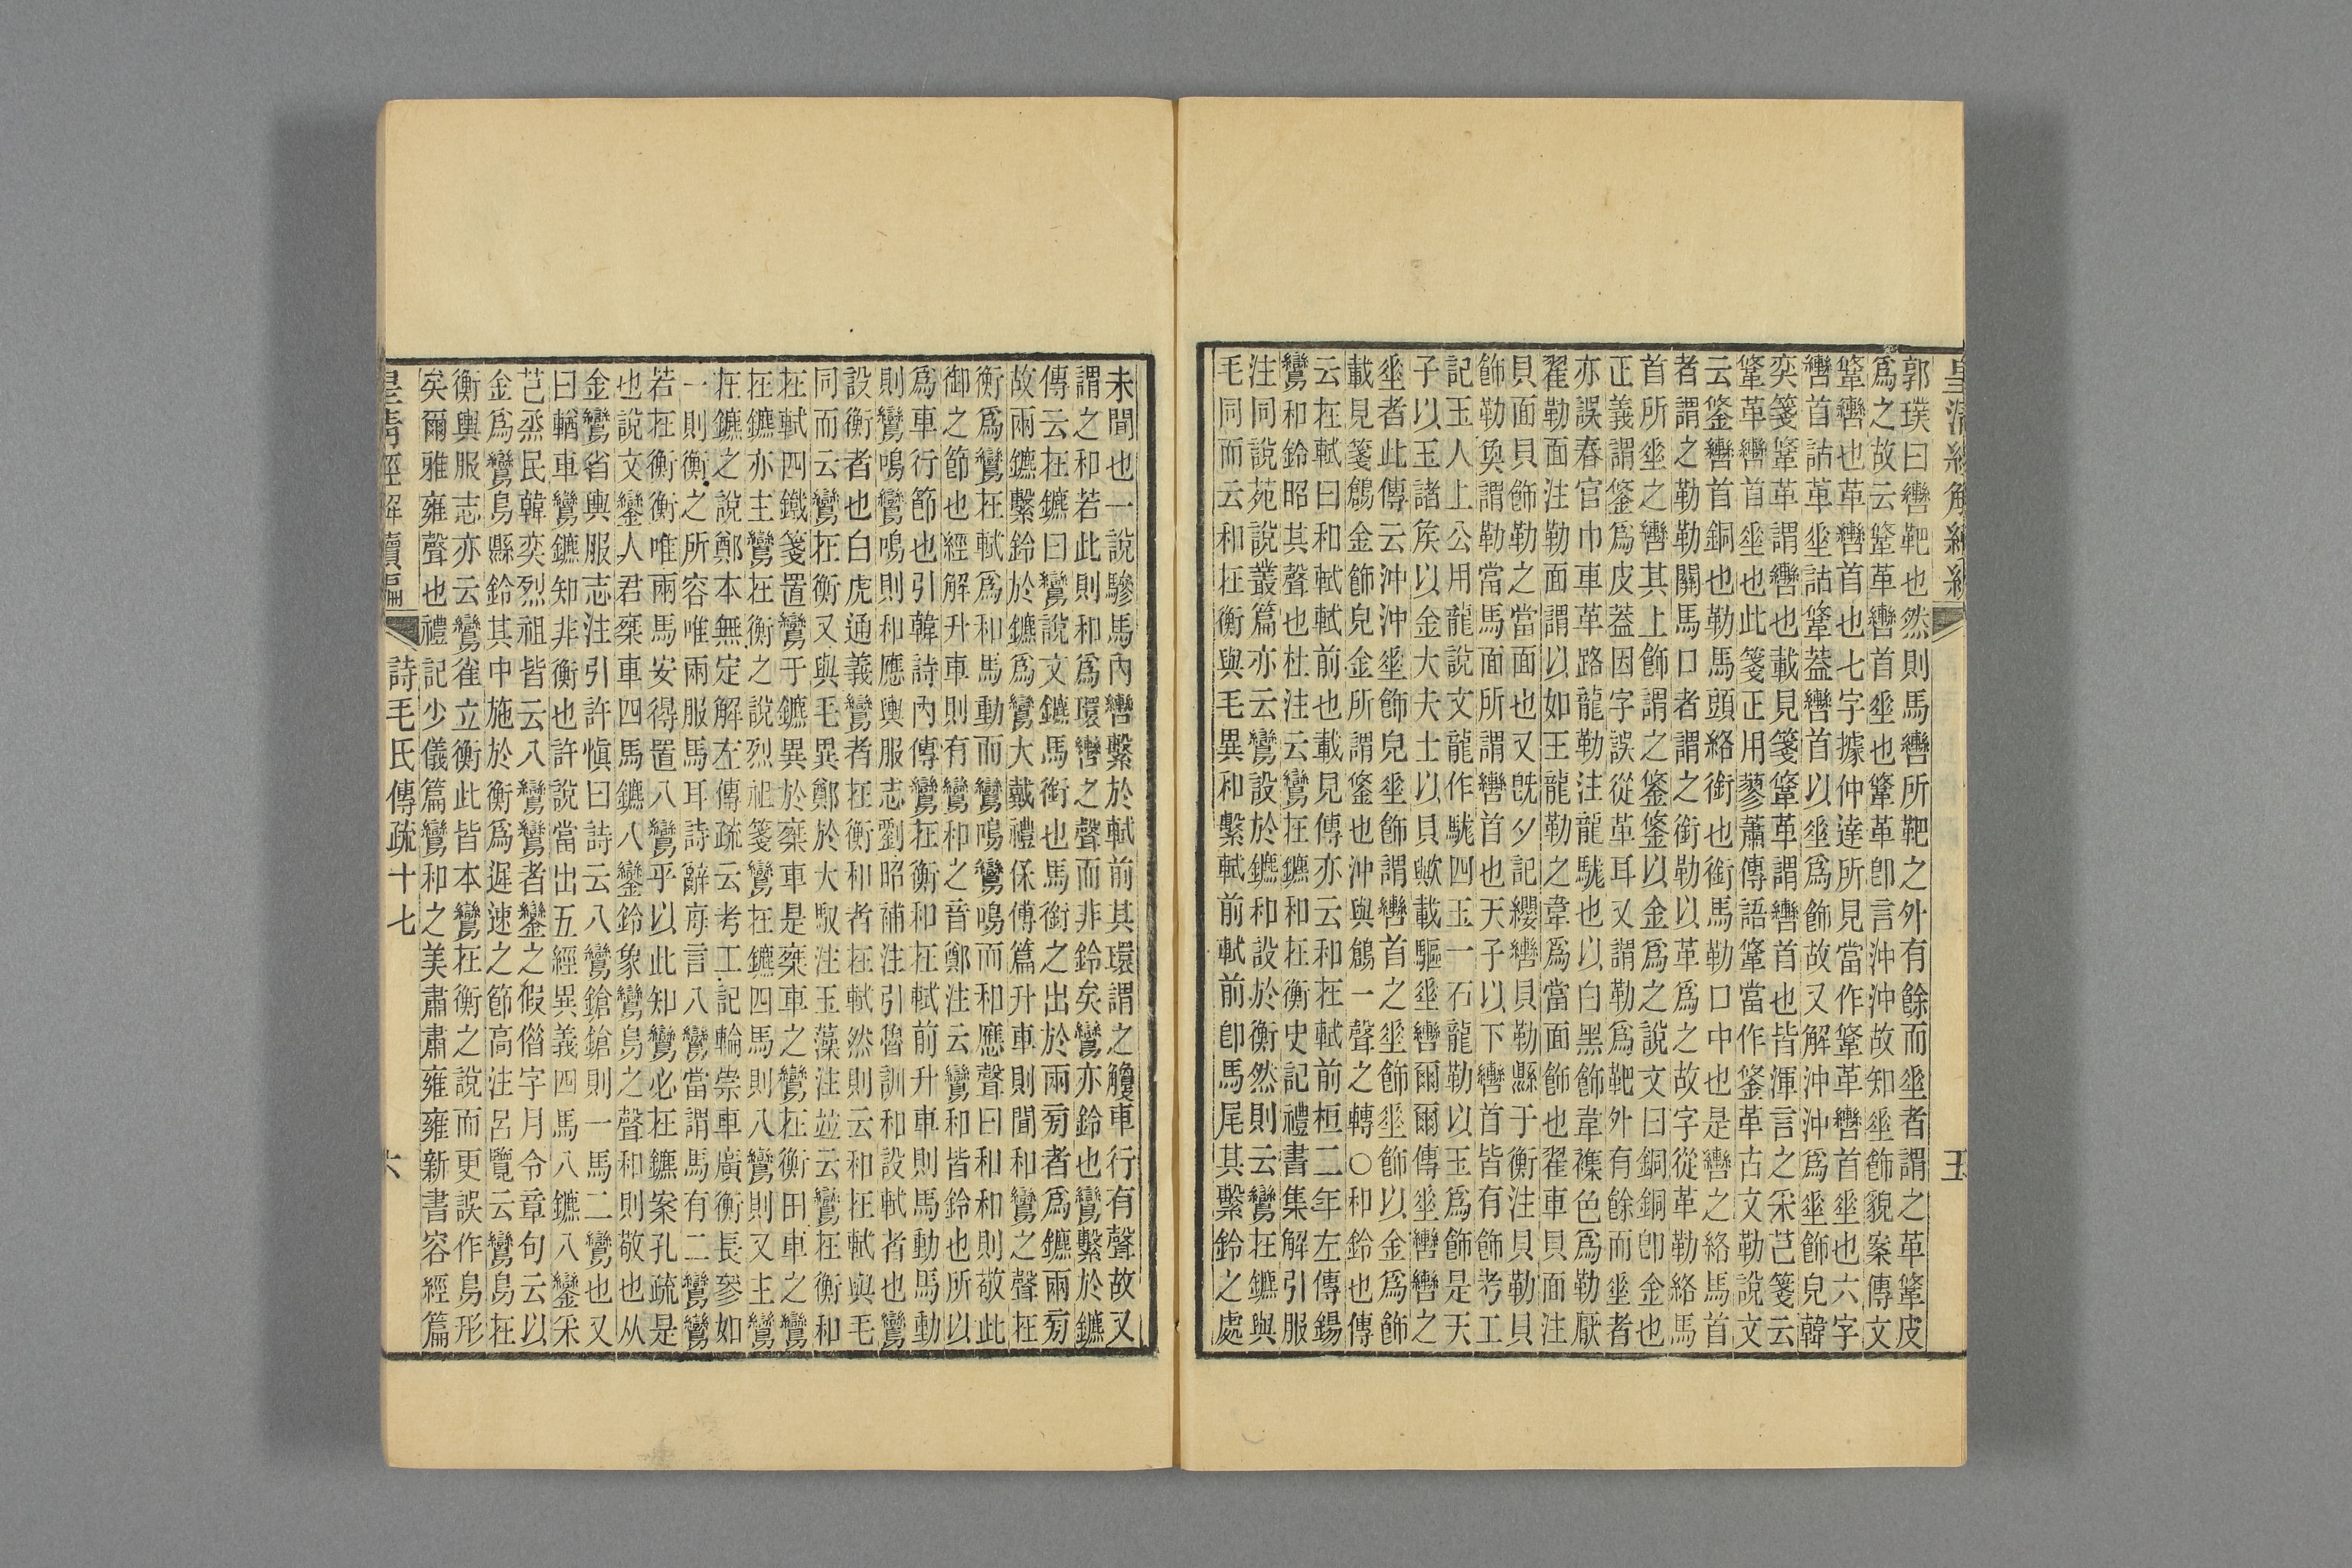 皇清經解續編 五
郭璞曰轡靶也然則馬轡所靶之外有餘而垂者謂之革鞗皮
爲之故云鞗革轡首垂也鞗革卽言沖沖故知垂飾貌案傳文
鞗轡也革轡首也七字據仲達所見當作鞗革轡首垂也六字
轡首詁革垂詁鞗葢轡首以垂爲飾故又解沖沖爲垂飾皃韓
奕箋鞗革謂轡也載見箋鞗革謂轡首也皆渾言之采芑箋云
鞗革轡首垂也此箋正用蓼蕭傳語鞗當作鋚革古文勒說文
云鋚轡首銅也勒馬頭絡銜也銜馬勒口中也是轡之絡馬首
者謂之勒勒關馬口者謂之銜勒以革爲之故字從革勒絡馬
首所垂之轡其上飾謂之鋚鋚以金爲之說文曰銅銅卽金也
正義謂鋚爲皮葢因字誤從革耳又謂勒爲靶外有餘而垂者
亦誤春官巾車革路龍勒注龍駹也以白黑飾韋襍色爲勒厭
翟勒面注勒面謂以如王龍勒之韋爲當面飾也翟車貝面注
貝面貝飾勒之當面也又旣夕記纓轡貝勒縣于衡注貝勒貝
飾勒奐謂勒當馬面所謂轡首也天子以下轡首皆有飾考工
記玉人上公用龍說文龍作駹四玉一石龍勒以玉爲飾是天
子以玉諸矦以金大夫士以貝歟載驅垂轡爾爾傳垂轡轡之
垂者此傳云沖沖垂飾皃垂飾謂轡首之垂飾垂飾以金爲飾
載見箋鶬金飾皃金所謂鋚也沖與鶬一聲之轉○和鈴也傳
云在軾曰和軾軾前也載見傳亦云和在軾前桓二年左傳鍚
鸞和鈴昭其聲也杜注云鸞在鑣和在衡史記禮書集解引服
注同說苑說叢篇亦云鸞設於鑣和設於衡然則云鸞在鑣與
毛同而云和在衡與毛異和繫軾前軾前卽馬尾其繫鈴之處
未聞也一說驂馬內轡繫於軾前其環謂之觼車行有聲故又
謂之和若此則和爲環轡之聲而非鈴矣鸞亦鈴也鸞繫於鑣
傳云在鑣曰鸞說文鑣馬銜也馬銜之出於兩旁者爲鑣兩旁
故兩鑣繫鈴於鑣爲鸞大戴禮保傅篇升車則聞和鸞之聲在
衡爲鸞在軾爲和馬動而鸞鳴鸞鳴而和應聲曰和和則敬此
御之節也經解升車則有鸞和之音鄭注云鸞和皆鈴也所以
爲車行節也引韓詩內傳鸞在衡和在軾前升車則馬動馬動
則鸞鳴鸞鳴則和應輿服志劉昭補注引魯訓和設軾者也鸞
設衡者也白虎通義鸞者在衡和者在軾然則云和在軾與毛
同而云鸞在衡又與毛異鄭於大馭注玉藻注竝云鸞在衡和
在軾四鐵箋置鸞于鑣異於乘車是乘車之鸞在衡田車之鸞
在鑣亦主鸞在衡之說烈祖箋鸞在鑣四馬則八鸞則又主鸞
在鑣之說鄭本無定解左傳疏云考工記輪崇車廣衡長參如
一則衡之所容唯兩服馬耳詩辭每言八鸞當謂馬有二鸞鸞
若在衡衡唯兩馬安得置八鸞乎以此知鸞必在鑣案孔疏是
也說文鑾人君乘車四馬鑣八鑾鈴象鸞鳥之聲和則敬也从
金鸞省輿服志注引許愼曰詩云八鸞鎗鎗則一馬二鸞也又
曰輶車鸞鑣知非衡也許說當出五經異義四馬八鑣八鑾采
芑烝民韓奕烈祖皆云八鸞鸞者鑾之假借字月令章句云以
金爲鸞鳥縣鈴其中施於衡爲遲速之節高注呂覽云鸞鳥在
衡輿服志亦云鸞雀立衡此皆本鸞在衡之說而更誤作鳥形
矣爾雅雍聲也禮記少儀篇鸞和之美肅肅雍雍新書容經篇
皇清經解續編 詩毛氏傳疏十七 六